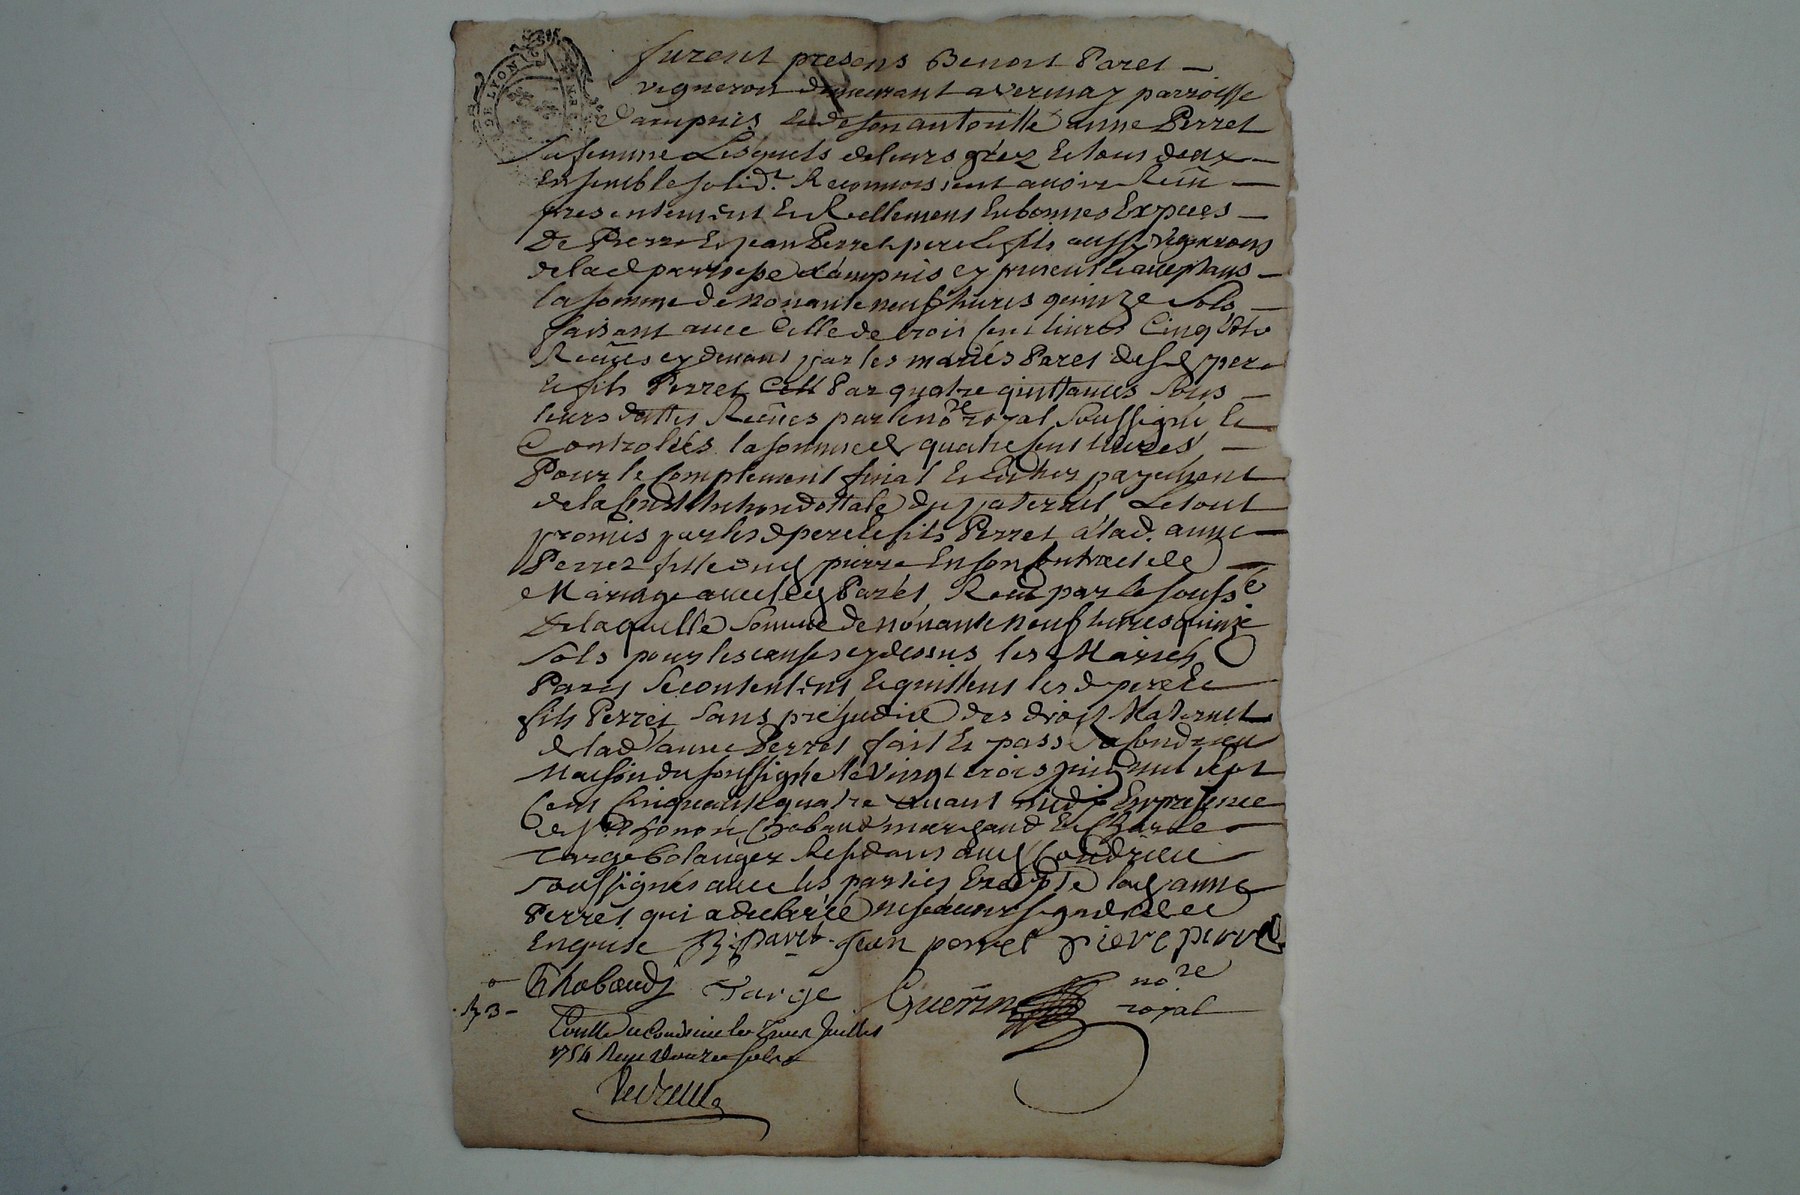 DE LYON
furent presens Benoit Paret
vigneron demeurant a verenay parroisse
d'ampuis et de son autorité anne Perret
sa femme Lesquels de leurs grez et tous deux
ensemble solid.t Reconnoissent avoir Reçû
presentement et Reellement en bonnes Espèces
De Pierre et jean Perret pere et fils aussy vignerons
de lad parroisse d'ampuis cy present et acceptans
la somme de nonante neuf livres quinze sols
faisant avec Celle de trois cent livres Cinq sols
Reçües cy devant par les mariés Paret desd pere
et fils Perret Par quatre quittances sous
leurs dattes Reçües par le no.re royal soussigné et
Controllées la somme de quatre cent livres
Pour le Complement final et entier payement
de la Constitution dottale du paternel Le tout
promis par lesd pere et fils Perret a lad. anne
Perret fille dud pierre en son Contract de
Mariage avec led Paret Reçu par le souss.é
De laquelle somme de nonante neuf livres quinze
sols pour les causes cy dessus les Mariés
Paret se contentent et quittent les d pere et
fils Perret sans prejudice des droits Maternels
de lad anne Perret fait et passé a Condrieu
Maison du soussigné le vingt trois juin mil sept
Cent Cinquante quatre avant midy En presence
de honoré Chaboud marchand et
Targe bolanger Residans aud Condrieu
soussignés avec les parties Excepté lad anne
Perret qui a declaré ne sçavoir signer de ce
Enquise B. Paret jean perret piere perre
Chaboud Targe Guerin no.re
royal
R 3
Con.lle a Condrieu le juillet
1754 Reçu douze sols